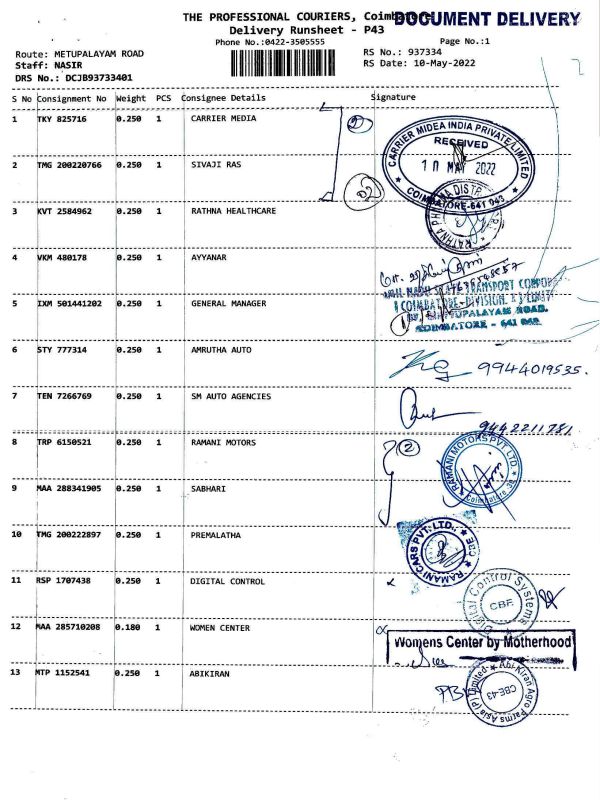 THE PROFESSIONAL COURIERS, Coimbatore
DOCUMENT DELIVERY
Delivery Runsheet - P43
Phone No.:0422-3505555
Page No.:1
Route: METUPALAYAM ROAD
RS No.: 937334
Staff: NASIR
RS Date: 10-May-2022
DRS No.: DCJB93733401
S No Consignment No Weight PCS Consignee Details Signature
1 TKY 825716 0.250 1 CARRIER MEDIA
2
CARRIER MIDEA INDIA PRIVATE LIMITED
RECEIVED
10 MAY 2022
COIMBATORE-641 043
2 TMG 200220766 0.250 1 SIVAJI RAS
02
3 KVT 2584962 0.250 1 RATHNA HEALTHCARE
4 VKM 480178 0.250 1 AYYANAR
5 IXM 501441202 0.250 1 GENERAL MANAGER
TRANSPORT CORPORA
COIMBATORE-DIVISION
METTUPALAYAM ROAD.
COIMBATORE - 641 043.
6 STY 777314 0.250 1 AMRUTHA AUTO
9944019535.
7 TEN 7266769 0.250 1 SM AUTO AGENCIES
9442211781
8 TRP 6150521 0.250 1 RAMANI MOTORS
2
RAMANI MOTORS PVT. LTD.
Coimbatore
9 MAA 288341905 0.250 1 SABHARI
10 TMG 200222897 0.250 1 PREMALATHA
RAMANI CARS PVT. LTD., CBE
11 RSP 1707438 0.250 1 DIGITAL CONTROL
Digital Control Systems
CBE
12 MAA 285710208 0.180 1 WOMEN CENTER
Womens Center by Motherhood
13 MTP 1152541 0.250 1 ABIKIRAN
Abi Kiran Agro Farms Asia (P) Limited
CBE-43